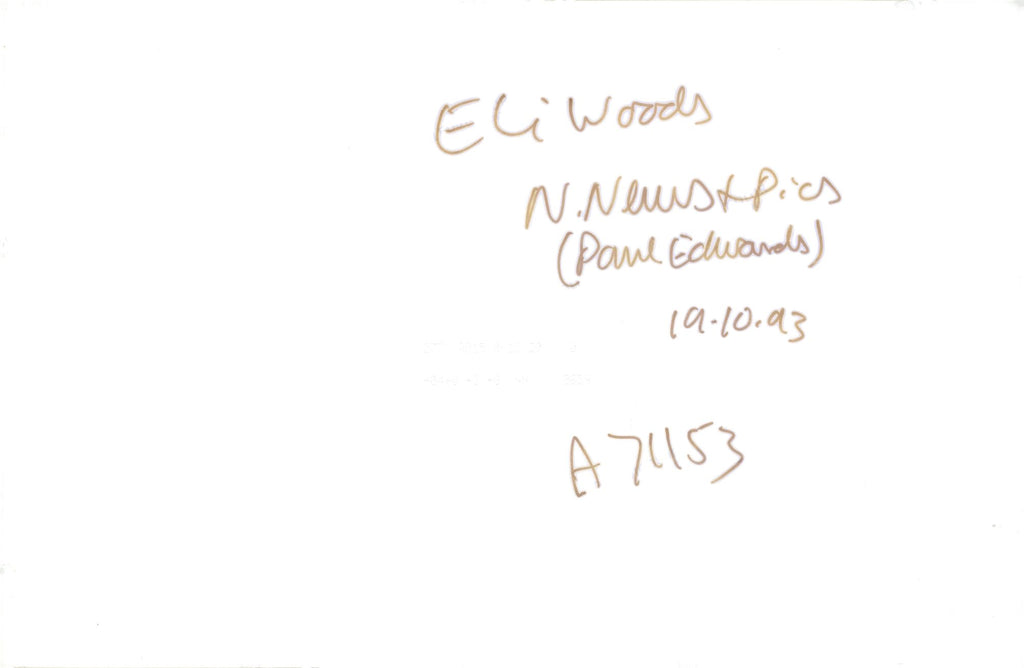 Eli Woods
N. News & Pics
(Paul Edwards)
19.10.93
A 71153